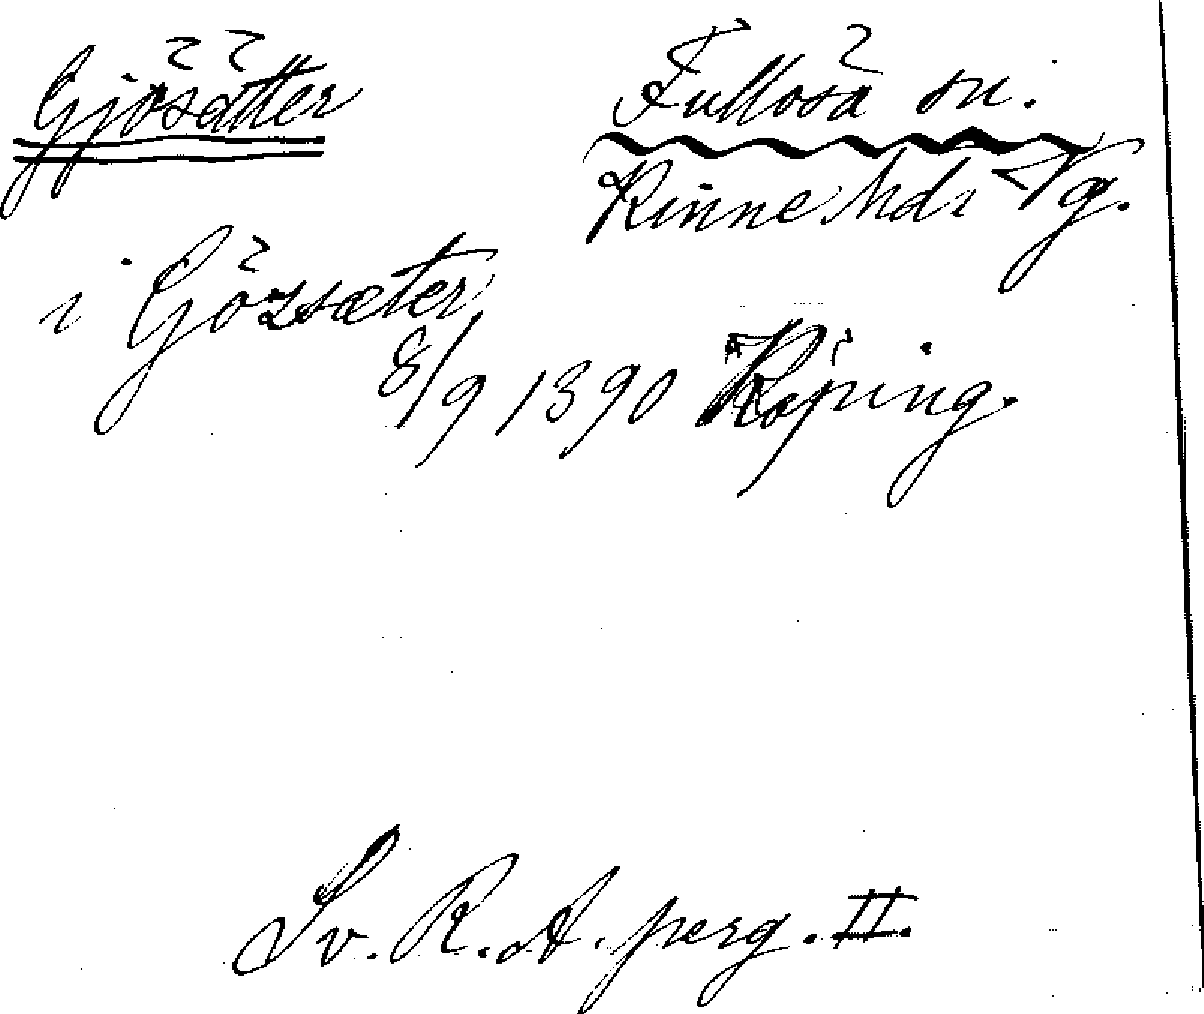 Gjösätter
Fullösa sn.
Kinne hd. Vg.
i Gözsæter
8/9 1390 Köping.
Sv. R. A. perg. II.